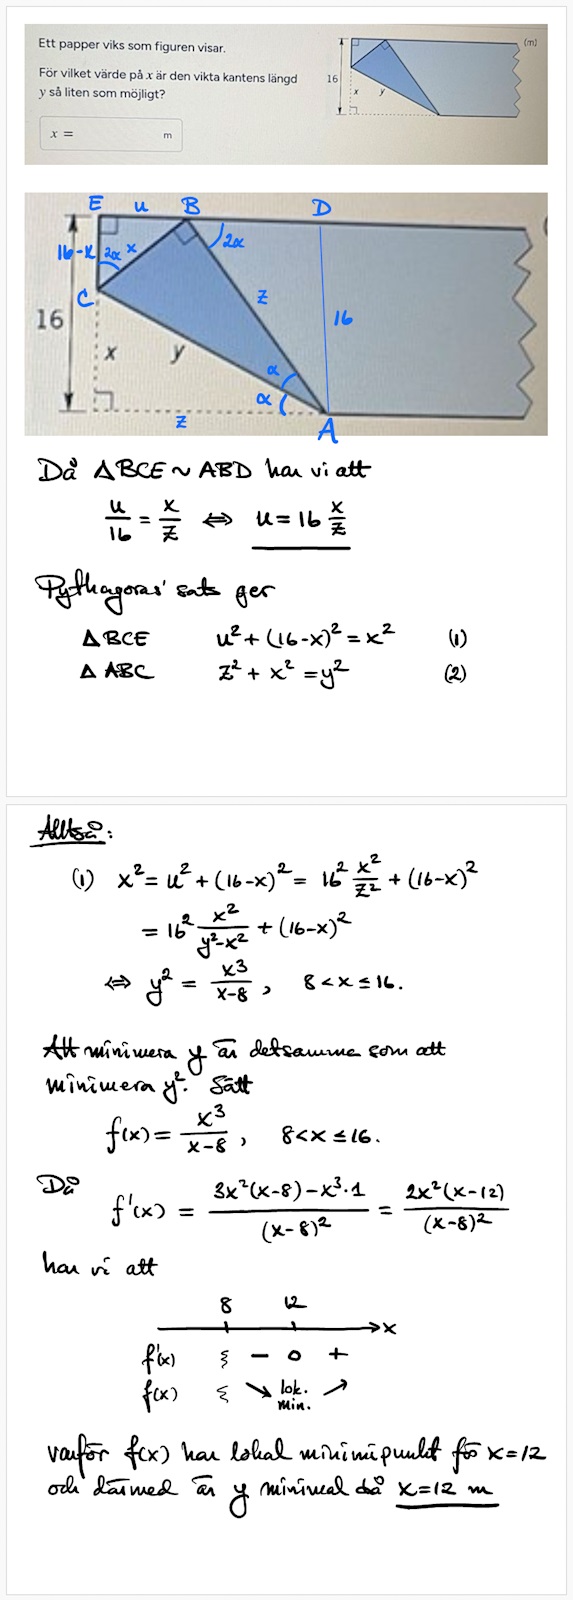 Ett papper viks som figuren visar.
För vilket värde på x är den vikta kantens längd
y så liten som möjligt?
x = m
(m)
16
x y
E u B D
16-x 2α x 2α
C z
16 16
x y α
α
z A
Då △BCE ~ ABD har vi att
u/16 = x/z ⇔ u = 16 x/z
Pythagoras' sats ger
△BCE u² + (16-x)² = x² (1)
△ABC z² + x² = y² (2)
Alltså:
(1) x² = u² + (16-x)² = 16² x²/z² + (16-x)²
= 16² x²/(y²-x²) + (16-x)²
⇔ y² = x³/(x-8), 8 < x ≤ 16.
Att minimera y är detsamma som att
minimera y². Sätt
f(x) = x³/(x-8), 8 < x ≤ 16.
Då
f'(x) = (3x²(x-8) - x³·1)/(x-8)² = 2x²(x-12)/(x-8)²
har vi att
8 12
x
f'(x) − 0 +
f(x) ↘ lok. min. ↗
varför f(x) har lokal minimipunkt för x=12
och därmed är y minimal då x=12 m